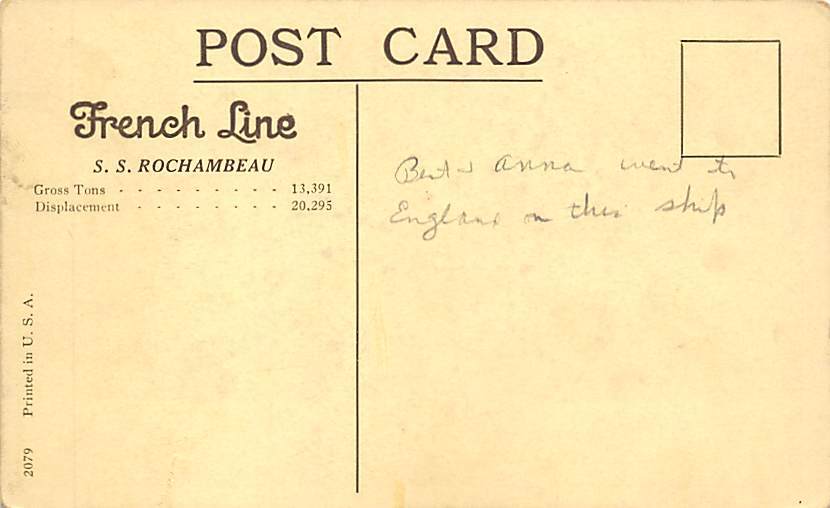 POST CARD
French Line
S. S. ROCHAMBEAU
Gross Tons - - - - - - - - - 13,391
Displacement - - - - - - - - 20,295
Bert & Anna went to
England on this ship
2079 Printed in U. S. A.